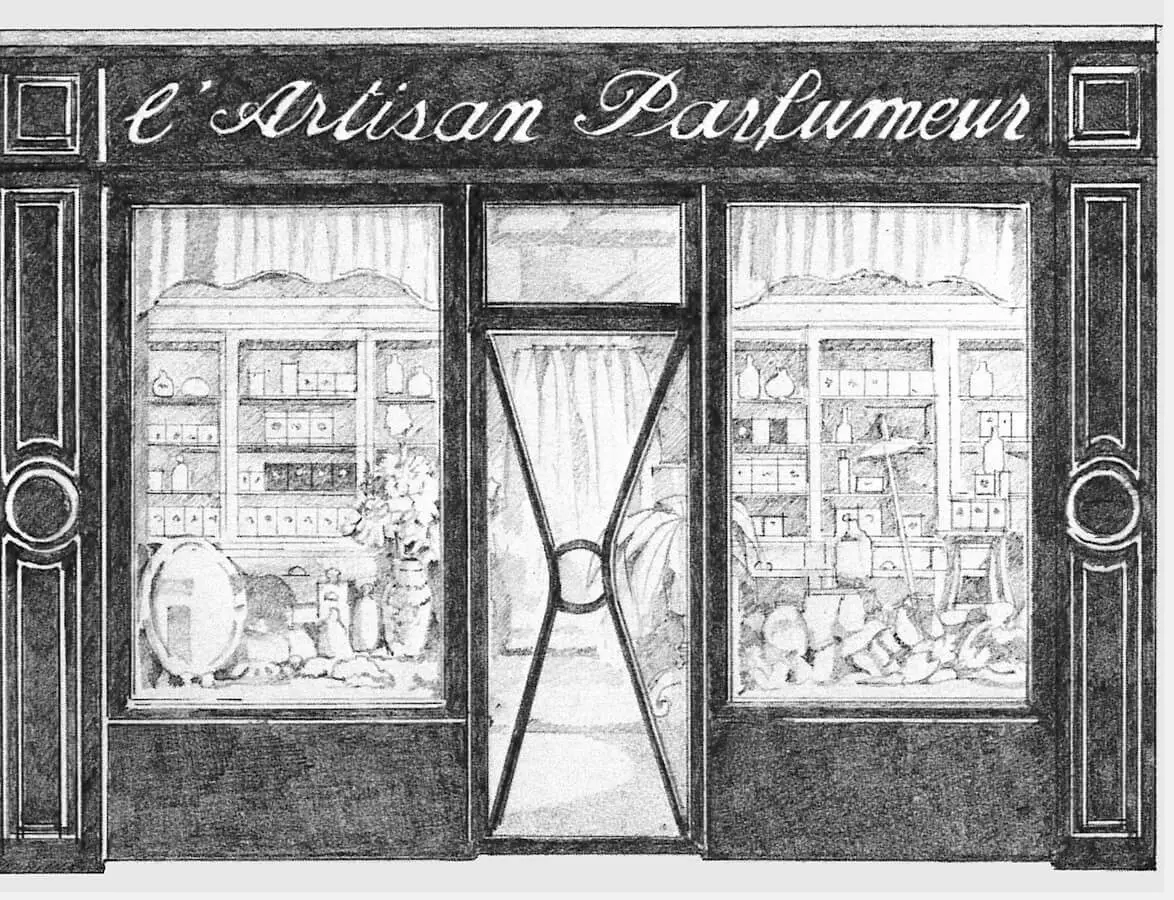 l'Artisan Parfumeur